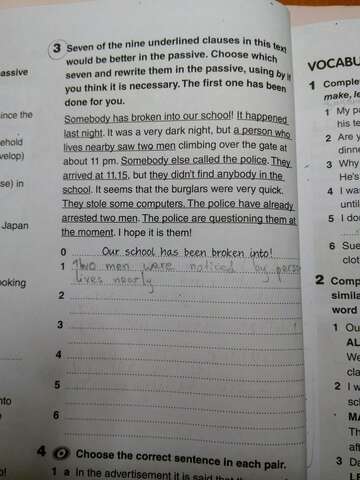 3 Seven of the nine underlined clauses in this text
would be better in the passive. Choose which
seven and rewrite them in the passive, using by if
you think it is necessary. The first one has been
done for you.
Somebody has broken into our school! It happened
last night. It was a very dark night, but a person who
lives nearby saw two men climbing over the gate at
about 11 pm. Somebody else called the police. They
arrived at 11.15, but they didn't find anybody in the
school. It seems that the burglars were very quick.
They stole some computers. The police have already
arrested two men. The police are questioning them at
the moment. I hope it is them!
0 Our school has been broken into!
1 Two men were noticed by person
lives nearly
2
3
4
5
6
4 Choose the correct sentence in each pair.
1 a In the advertisement it is said that
assive
ince the
ehold
velop)
se) in
Japan
ooking
nto
o!
VOCABU
1 Comple
make, le
1 My pa
his te
2 Are y
dinne
3 Why
He's
4 I was
until
5 I do
6 Sue
clot
2 Comp
simila
word
1 Ou
AL
We
cla
2 I w
sc
MA
Th
aft
3 Da
LE